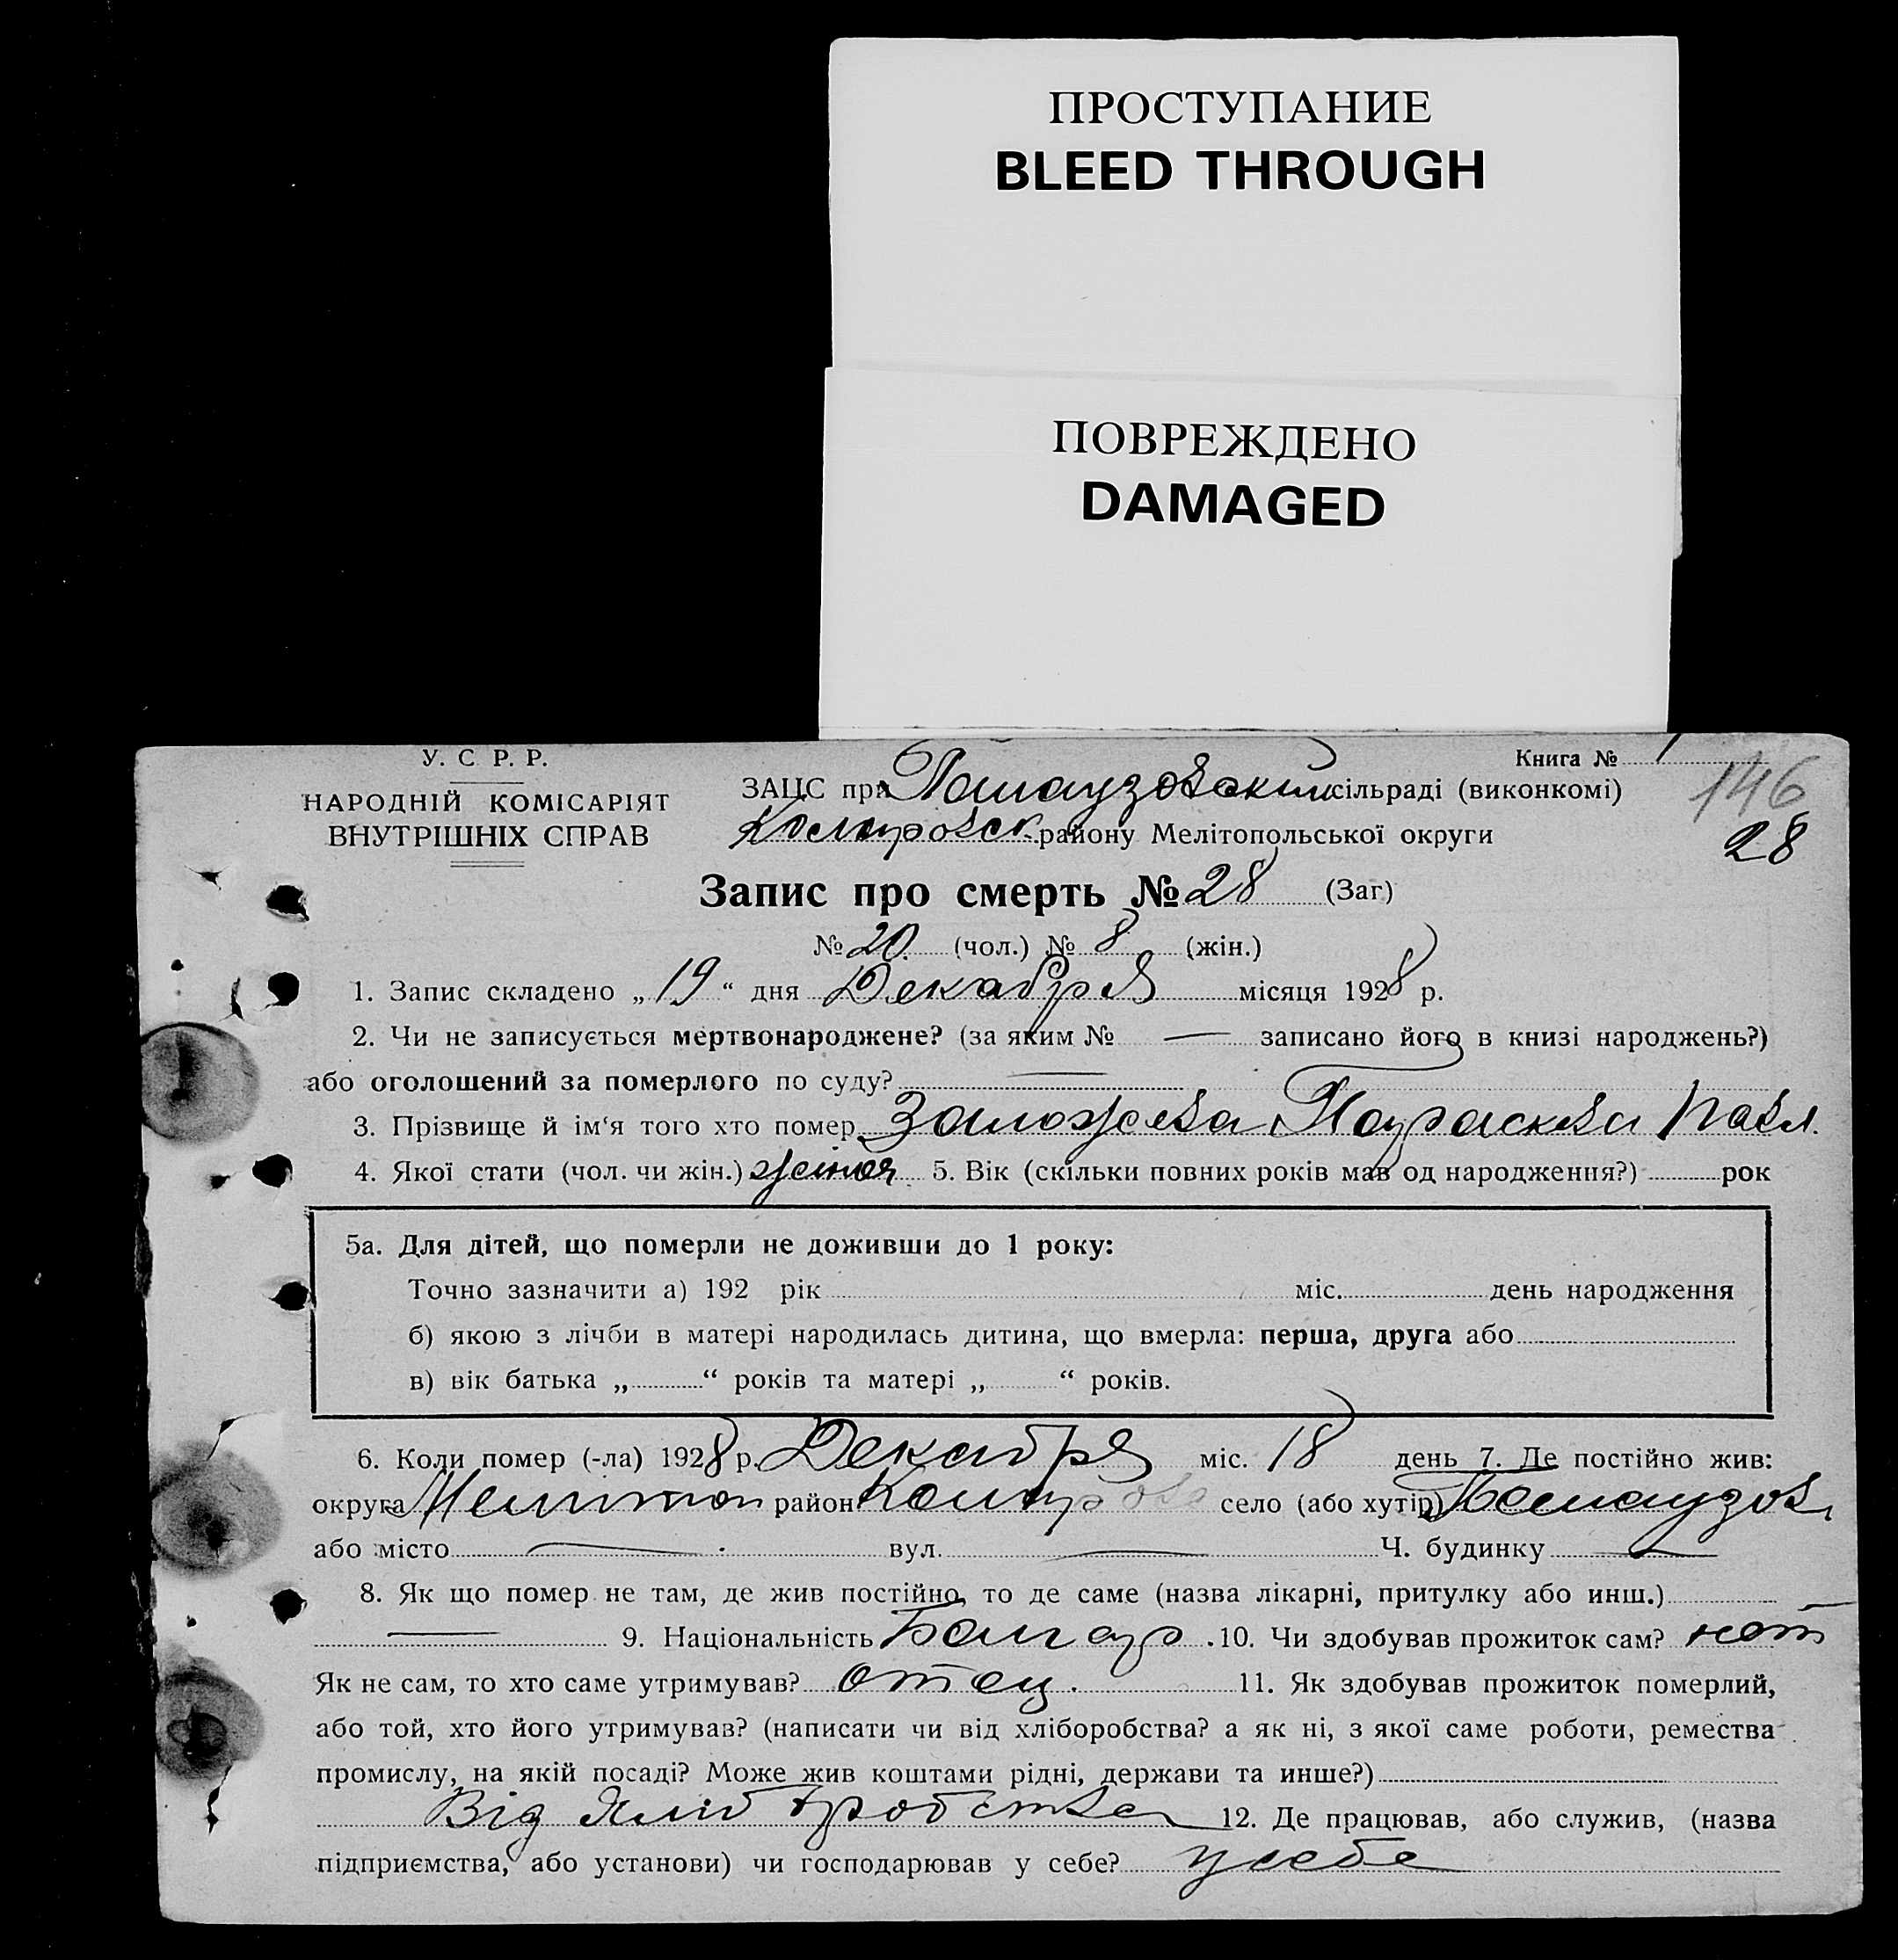 ПРОСТУПАНИЕ
BLEED THROUGH
ПОВРЕЖДЕНО
DAMAGED
У. С. Р. Р.
НАРОДНІЙ КОМІСАРІЯТ
ВНУТРІШНІХ СПРАВ
Книга № 1
146
28
ЗАЦС при сільраді (виконкомі)
району Мелітопольської округи
Запис про смерть № 28 (Заг)
№ 20. (чол.) № 8 (жін.)
1. Запис складено „19“ дня Декабря місяця 1928 р.
2. Чи не записується мертвонароджене? (за яким № — записано його в книзі народжень?)
або оголошений за померлого по суду? —
3. Прізвище й ім‘я того хто помер Параскева Павл.
4. Якої стати (чол. чи жін.) 5. Вік (скільки повних років мав од народження?) рок
5а. Для дітей, що померли не доживши до 1 року:
Точно зазначити а) 192 рік міс. день народження
б) якою з лічби в матері народилась дитина, що вмерла: перша, друга або
в) вік батька „ “ років та матері „ “ років.
6. Коли помер (-ла) 1928 р. Декабря міс. 18 день 7. Де постійно жив:
округа Мелитоп район село (або хутір)
або місто — вул. — Ч. будинку —
8. Як що помер не там, де жив постійно, то де саме (назва лікарні, притулку або инш.)
— 9. Національність Болгар. 10. Чи здобував прожиток сам? нет
Як не сам, то хто саме утримував? отец. 11. Як здобував прожиток померлий,
або той, хто його утримував? (написати чи від хліборобства? а як ні, з якої саме роботи, ремества
промислу, на якій посаді? Може жив коштами рідні, держави та инше?)
Від хліборобства 12. Де працював, або служив, (назва
підприємства, або установи) чи господарював у себе? у себе